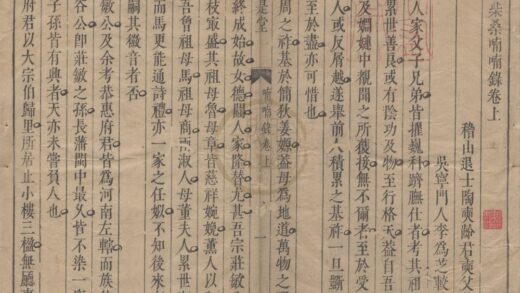 柴桑喃喃錄卷上
稽山退士陶奭齡君奭父
吳寧門人李為芝較
人家父子兄弟皆擢巍科躋膴仕者考其祖
累世善良或有陰功及物至行格天益自吾
及姻婕中覩聞之所獲接無不爾者至於受
人或反屑越遂舉前人積累之基祚一旦斷
至於盡亦可惜也
周之祚基於簡狄姜嫄蓋母為地道萬物之
是堂
喃喃錄卷上
一
終成始故女德關人家隆替尤甚吾宗莊敏
枝寖盛其祖母魯母章皆慈祥婉娩薰人以
吾曾祖母馬祖母商淑人母董夫人累世
而馬更能通詩禮亦一家之任姒不知後來
嗣其徽音者否
敏公及余考恭惠府君皆為河南左轄而族
谷公卽莊敏之孫長藩閩中最久皆不染一
子孫皆有興者天亦未嘗負人也
府君以大宗伯歸里所居止小樓三楹無廳